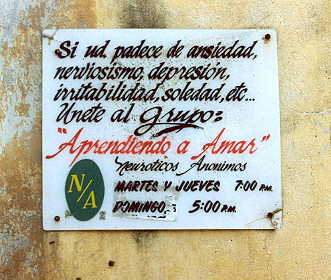 Si ud. padece de ansiedad,
nerviosismo, depresión,
irritabilidad, soledad, etc...
Unete al Grupo:
"Aprendiendo a Amar"
Neuroticos Anonimos
N/A
MARTES Y JUEVES 7:00 P.M.
DOMINGO 5:00 P.M.